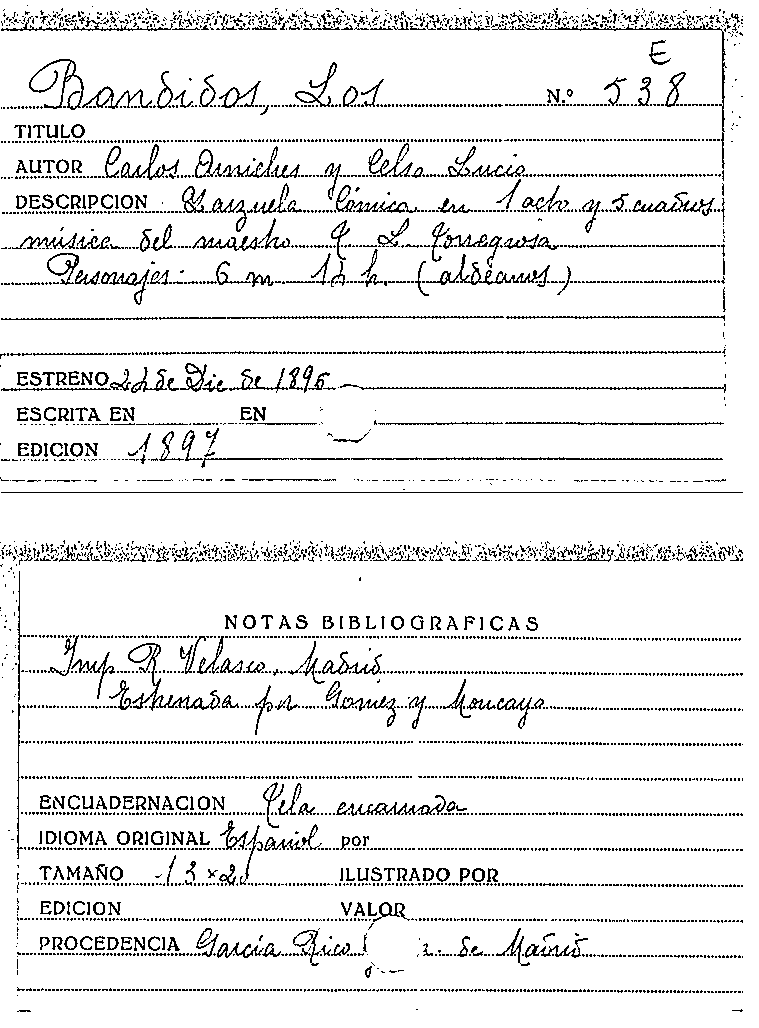 E
Bandidos, Los N.º 538
TITULO
AUTOR Carlos Arniches y Celso Lucio
DESCRIPCION Zarzuela Cómica en 1 acto y 5 cuadros
música del maestro T L. Torregrosa
Personajes: 6 m 12 h. (aldeanos)
ESTRENO 22 de Dic de 1896
ESCRITA EN EN
EDICION 1897
NOTAS BIBLIOGRAFICAS
Imp R Velasco. Madrid
Estrenada por Gomez y Moncayo
ENCUADERNACION Tela encarnada
IDIOMA ORIGINAL Español por
TAMAÑO 13 x 20 ILUSTRADO POR
EDICION VALOR
PROCEDENCIA García Rico de Madrid